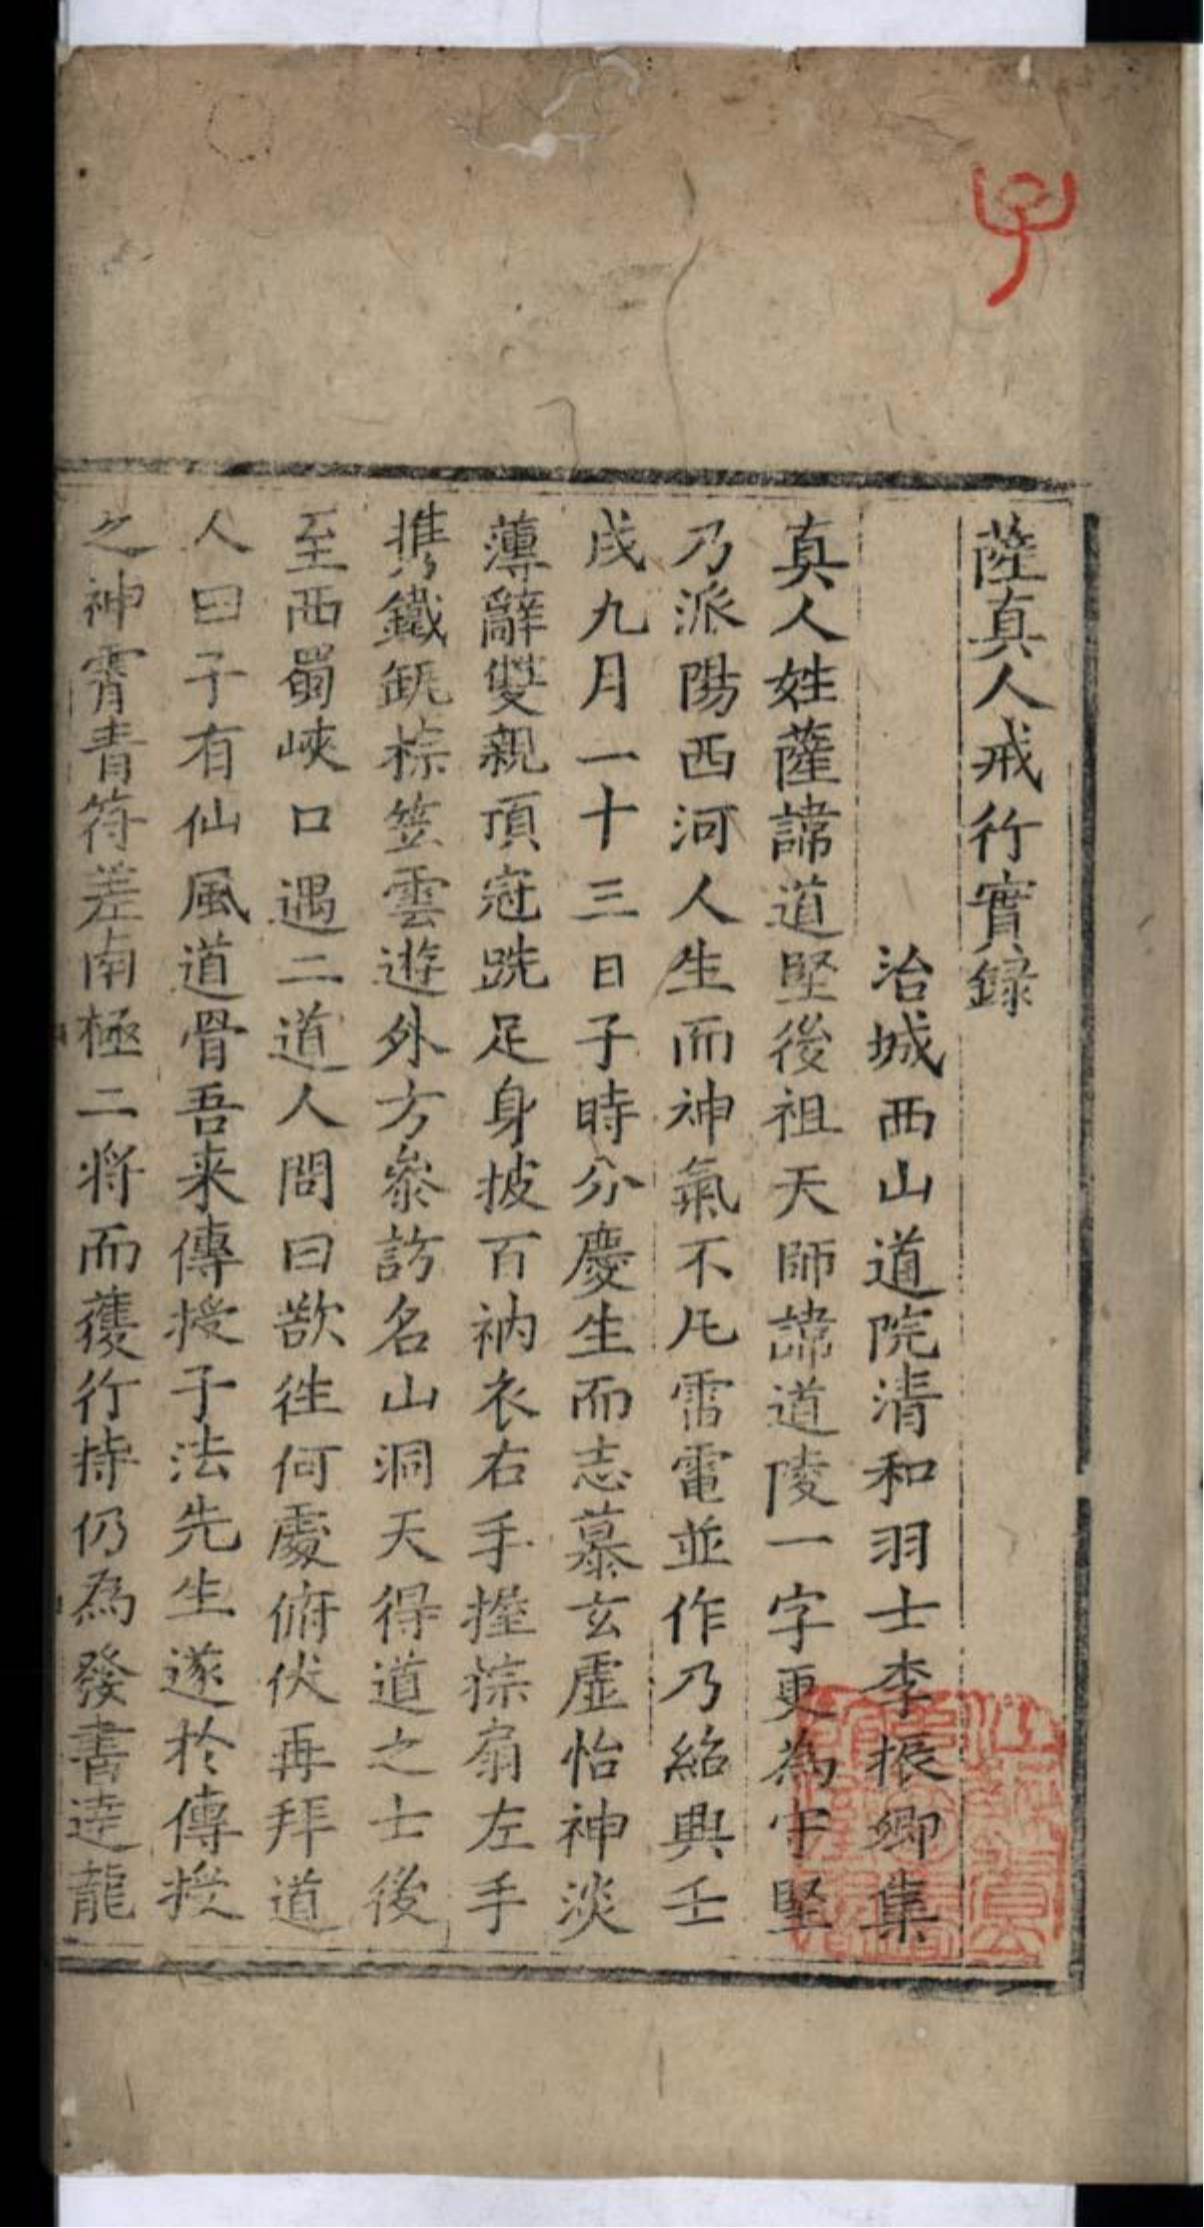 薩真人戒行實録
治城西山道院清和羽士李振卿集
真人姓薩諱道堅後祖天師諱道陵一字更為守堅
乃派陽西河人生而神氣不凡雷電並作乃紹興壬
戌九月一十三日子時分慶生而志慕玄虛怡神淡
薄辭雙親頂冠跣足身披百衲衣右手握棕扇左手
携鐵瓶棕笠雲遊外方參訪名山洞天得道之士後
至西蜀峽口遇二道人問曰欲往何處俯伏再拜道
人曰子有仙風道骨吾来傳授子法先生遂於傳授
之神霄青符差南極二将而獲行持仍為發書達龍